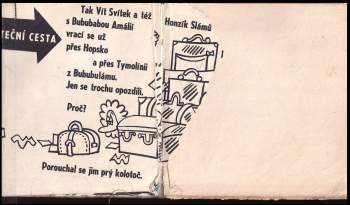 Tak Vít Svítek a též
s Bububabou Amálií
vrací se už
přes Hopsko
a přes Tymolinii
z Bububulámu.
Jen se trochu opozdili.
Proč?
Porouchal se jim prý kolotoč.
EČNÍ CESTA
Honzík Slámů